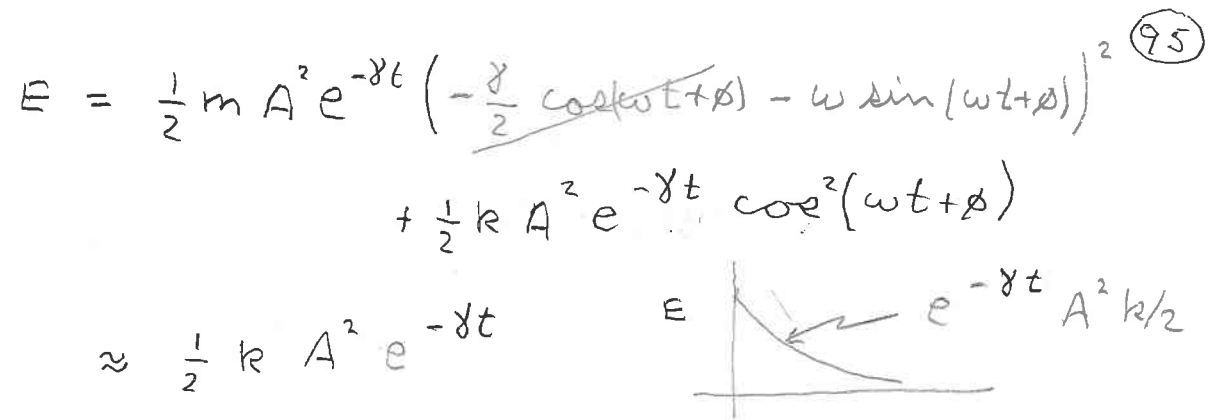 95
E = ½ m A² e^{-γt} (-γ/2 cos(ωt+ø) - ω sin(ωt+ø))²
+ ½ k A² e^{-γt} cos²(ωt+ø)
≈ ½ k A² e^{-γt}
E e^{-γt} A² k/2